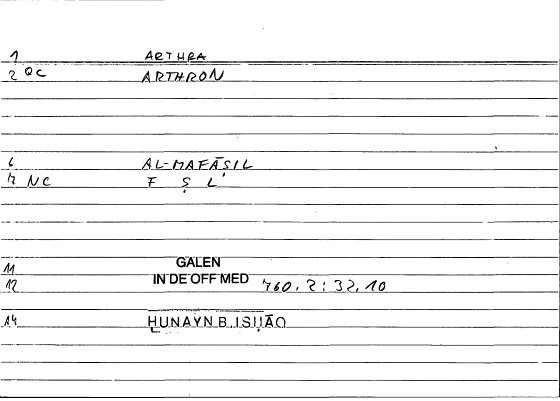 1 ARTHRA
2 QC ARTHRON
6 AL-MAFĀṢIL
7 NC F Ṣ L
11 GALEN
12 IN DE OFF MED 760.2:32,10
14 ḤUNAYN B. ISḤĀQ